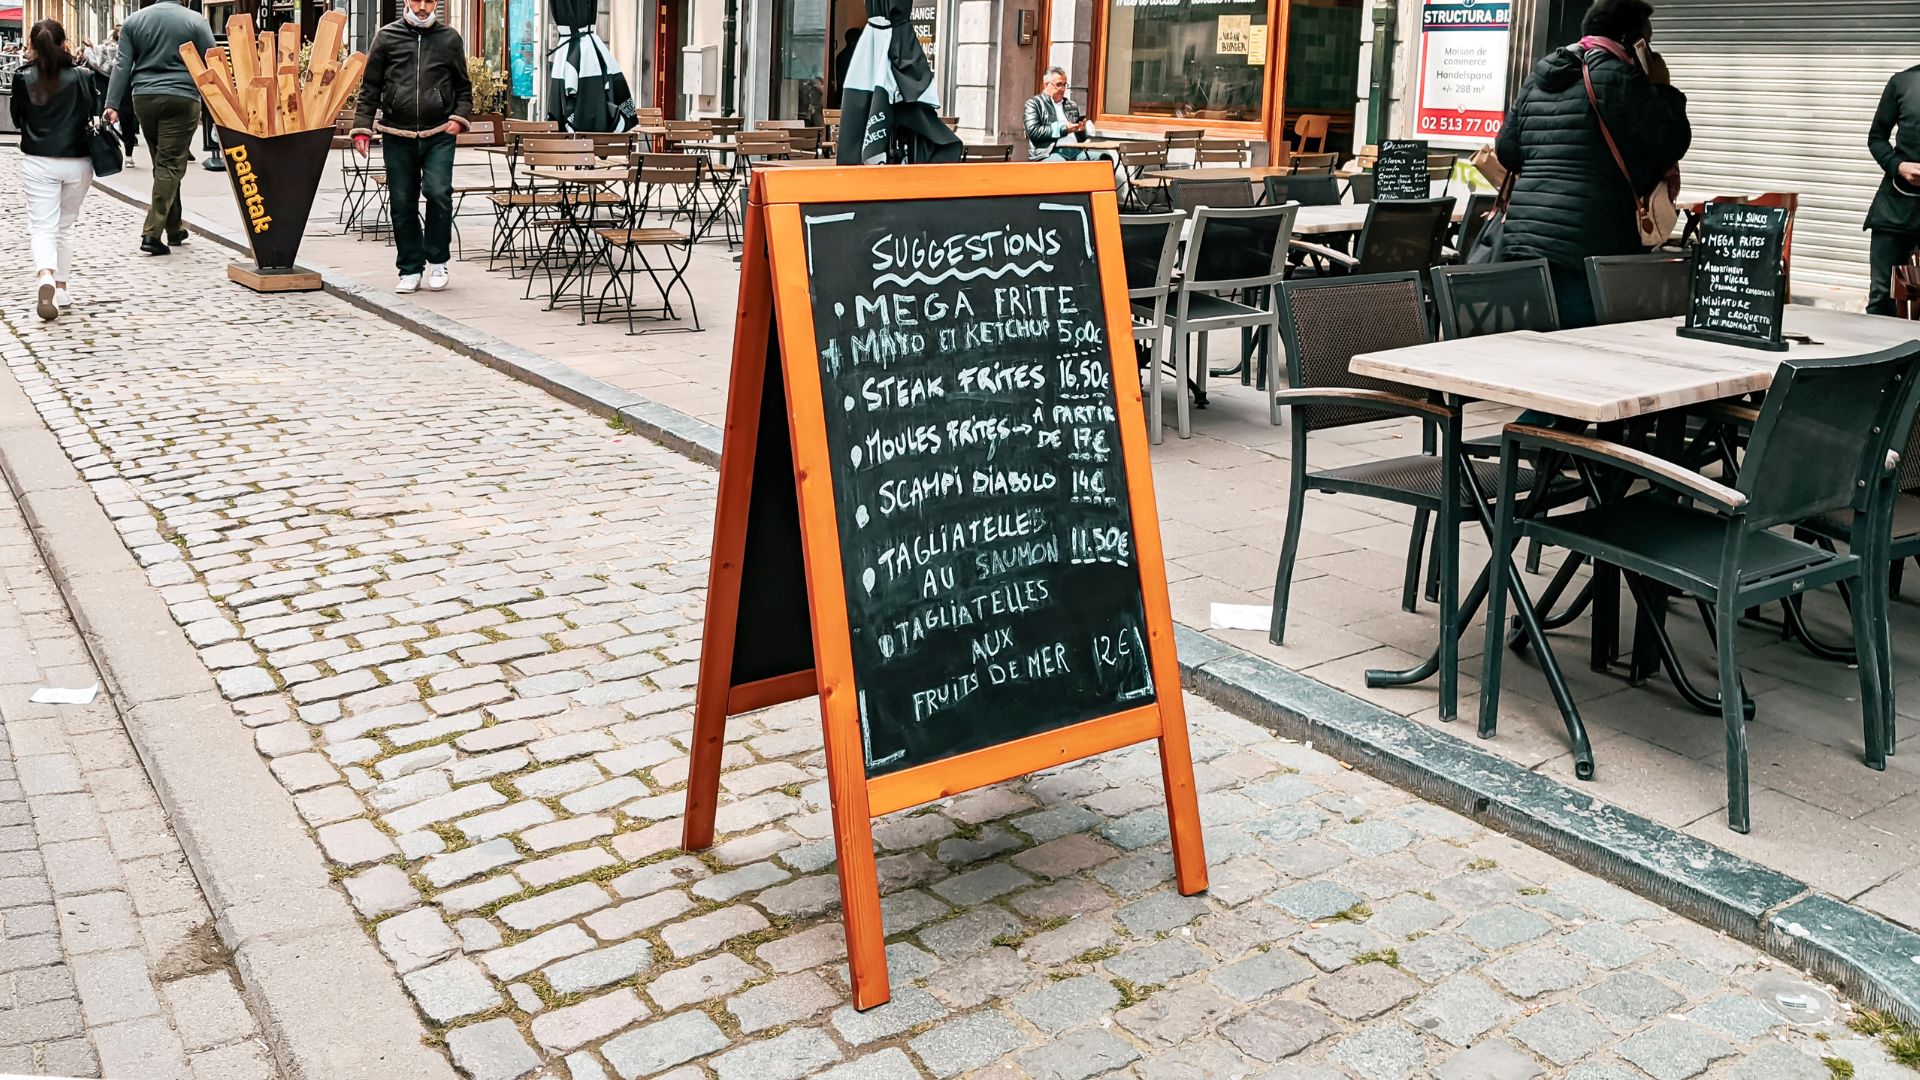 patatak
HANGE
SSEL
VEGAN
BURGER
STRUCTURA.BI
Maison de
commerce
Handelspand
+/- 288 m²
02 513 77 00
SUGGESTIONS
• MEGA FRITE
+ MAYO ET KETCHUP 5,00€
• STEAK FRITES 16,50€
• MOULES FRITES → À PARTIR
DE 17€
• SCAMPI DIABOLO 14€
• TAGLIATELLES
AU SAUMON 11.50€
• TAGLIATELLES
AUX
FRUITS DE MER 12€
NEW SNACKS
• MEGA FRITES
+ 3 SAUCES
• ASSORTIMENT
DU PIACRE
• MINIATURE
DE CROQUETTE
(AU FROMAGE).